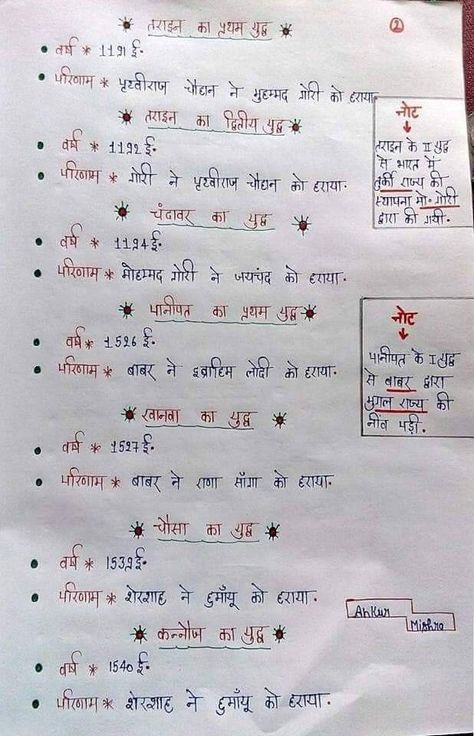 2
तराइन का प्रथम युद्ध
वर्ष * 1191 ई.
परिणाम * पृथ्वीराज चौहान ने मुहम्मद गोरी को हराया.
तराइन का द्वितीय युद्ध
वर्ष * 1192 ई.
परिणाम * गोरी ने पृथ्वीराज चौहान को हराया.
नोट
तराइन के II युद्ध
से भारत में
तुर्की राज्य की
स्थापना मो. गोरी
द्वारा की गयी.
चंदावर का युद्ध
वर्ष * 1194 ई.
परिणाम * मोहम्मद गोरी ने जयचंद को हराया.
पानीपत का प्रथम युद्ध
वर्ष * 1526 ई.
परिणाम * बाबर ने इब्राहिम लोदी को हराया.
नोट
पानीपत के I युद्ध
से बाबर द्वारा
मुगल राज्य की
नींव पड़ी.
खानवा का युद्ध
वर्ष * 1527 ई.
परिणाम * बाबर ने राणा साँगा को हराया.
चौसा का युद्ध
वर्ष * 1539 ई.
परिणाम * शेरशाह ने हुमाँयू को हराया.
Ankur
Mishra
कन्नौज का युद्ध
वर्ष * 1540 ई.
परिणाम * शेरशाह ने हुमाँयू को हराया.